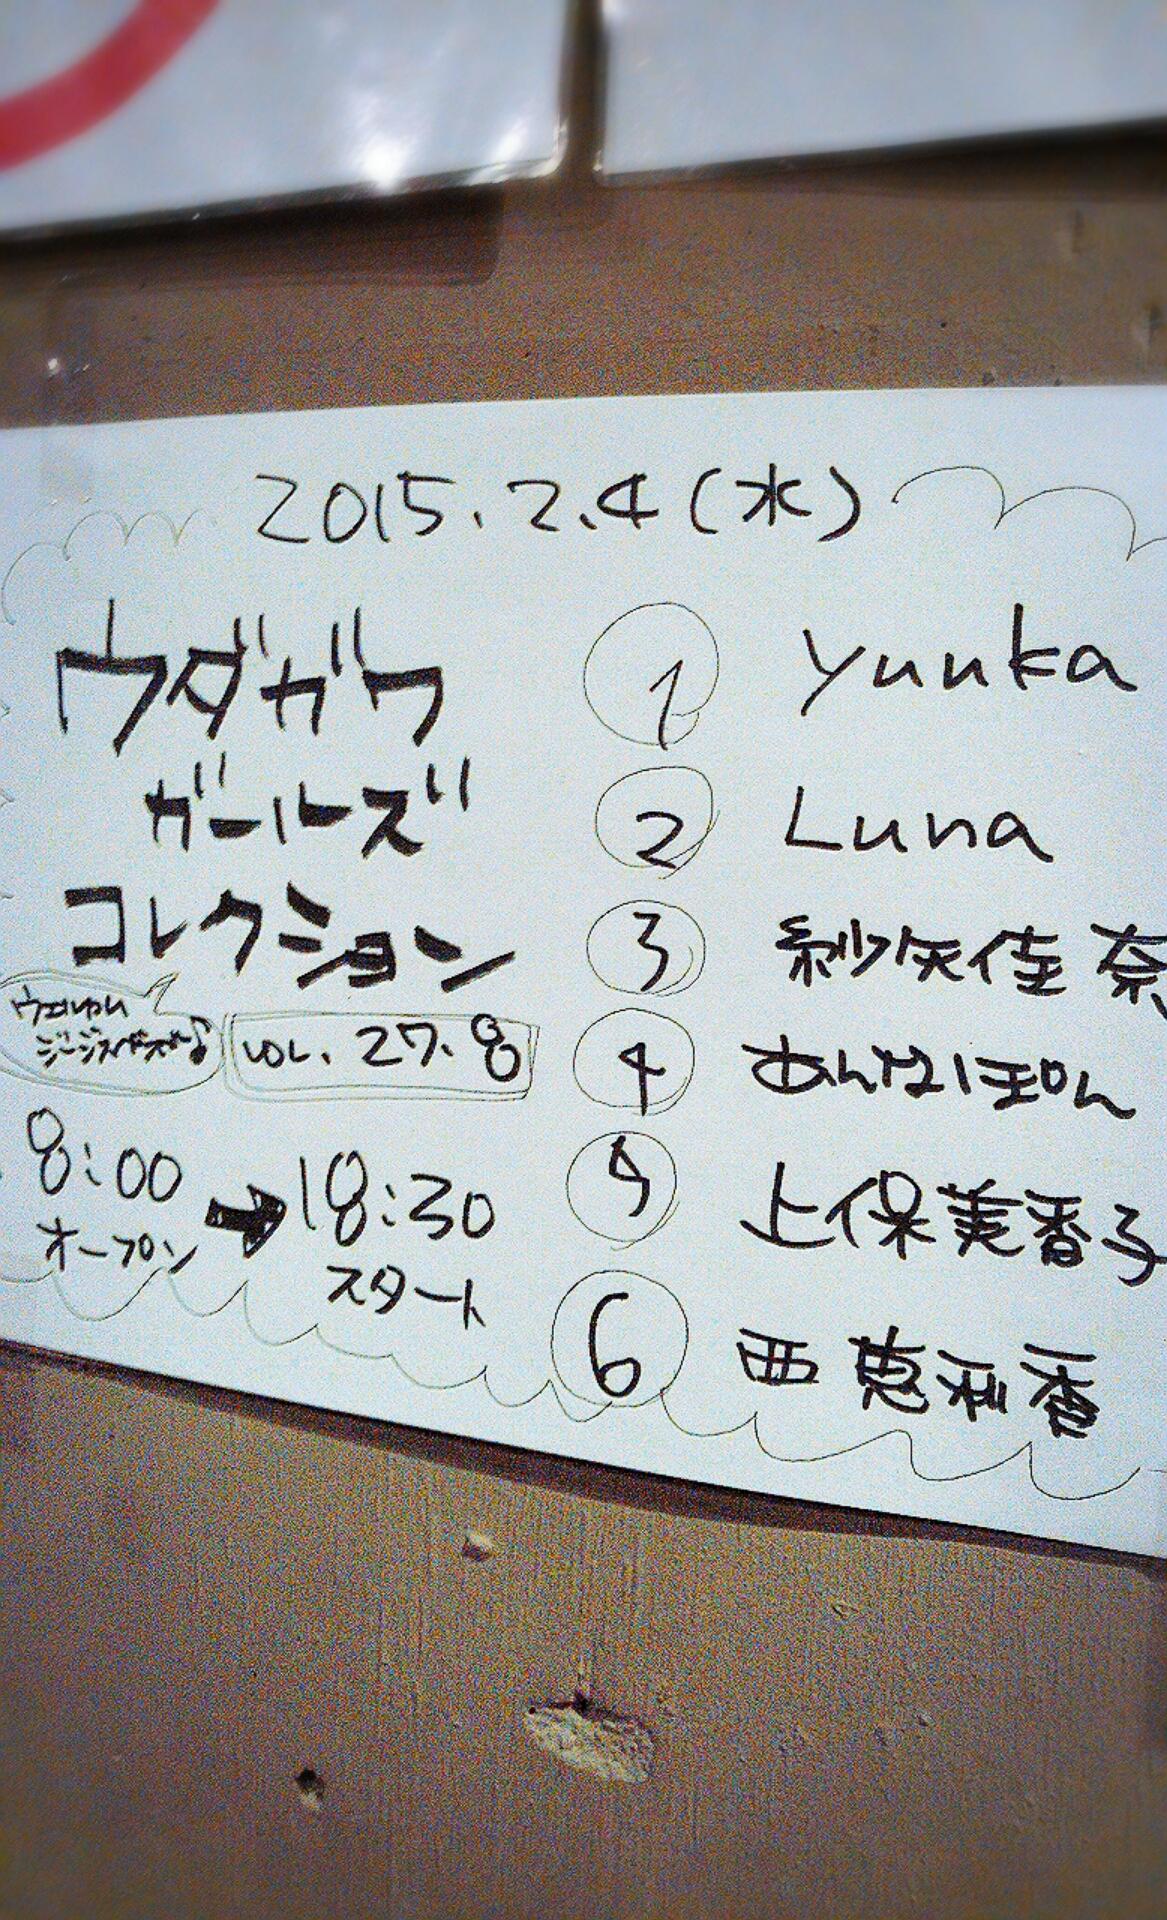 2015.2.4(水)
ウダガワ
ガールズ
コレクション
VOL. 27. 8
8:00
オープン
➡
18:30
スタート
① yuuka
② Luna
③ 紗矢佳奈
④ あんなぽん
⑤ 上保美香子
⑥ 亜恵利香